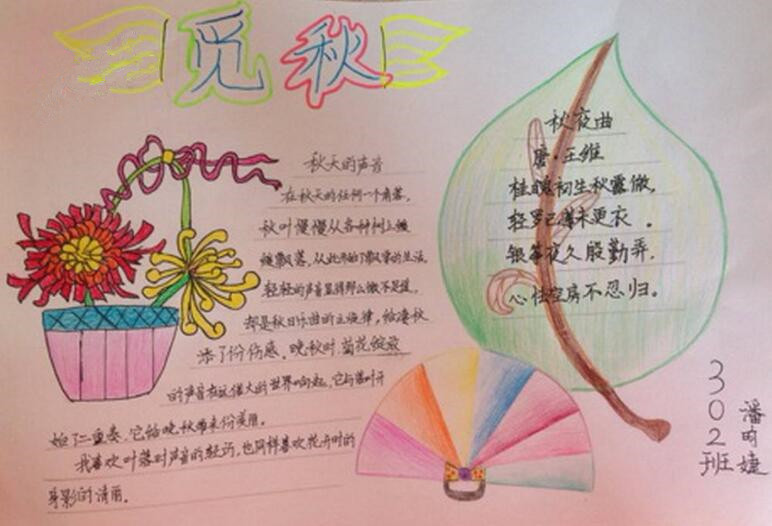 觅秋
秋天的声音
在秋天的任何一个角落,
秋叶慢慢从各种树上缓
缓飘落,从此开始了飘零的生活,
轻轻的声音显得那么微不足道,
却是秋日乐曲的主旋律,给凄秋
添了份伤感。晚秋时菊花绽放
的声音在这偌大的世界响起,它与落叶开
始了二重奏,它给晚秋带来份美丽。
我喜欢叶落时声音的轻巧,也同样喜欢花开时的
身影的清丽。
秋夜曲
唐·王维
桂魄初生秋露微,
轻罗已薄未更衣。
银筝夜久殷勤弄,
心怯空房不忍归。
302班
潘昀婕